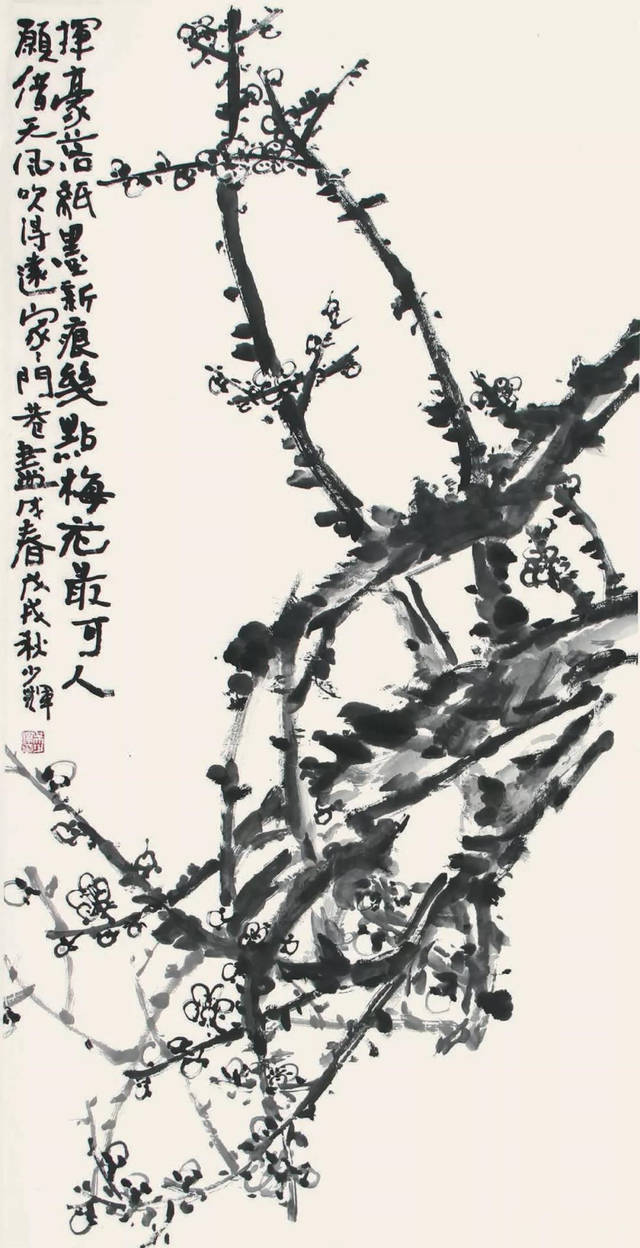 揮豪落紙墨新痕幾點梅花最可人
願借天风吹得遠家々門巷盡成春戊戌秋少輝